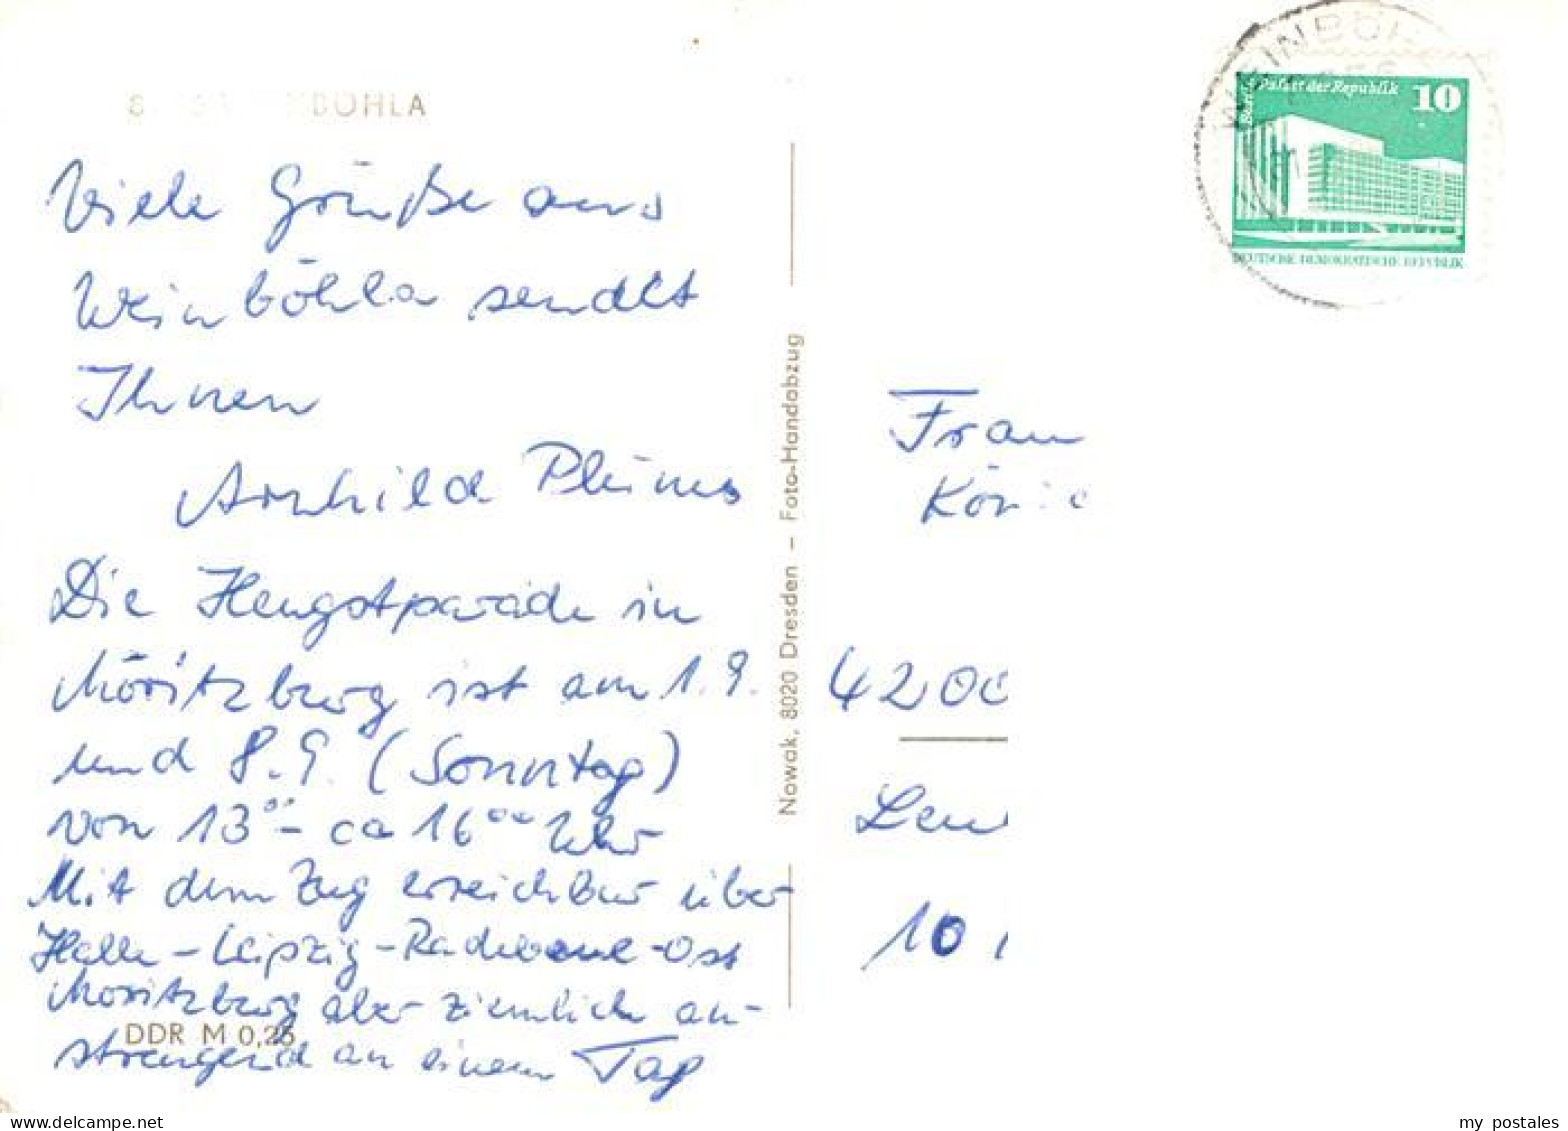 BÖHLA
Viele Grüße aus
Weinböhla sendet
Ihnen
Die Hengstparade in
Moritzburg ist am 1.9.
und 8.9. (Sonntag)
von 13°° - ca 16°° Uhr
Mit dem Zug erreichbar über
Halle - Leipzig - Radebeul - Ost
Moritzburg aber ziemlich an-
strengend an einem Tag
DDR M 0,25
Nowak, 8020 Dresden – Foto-Handabzug
WEINBÖH
Berlin, Palast der Republik
10
DEUTSCHE DEMOKRATISCHE REPUBLIK
Frau
Kön
4200
Leu
10
delcampe.net
my_postales